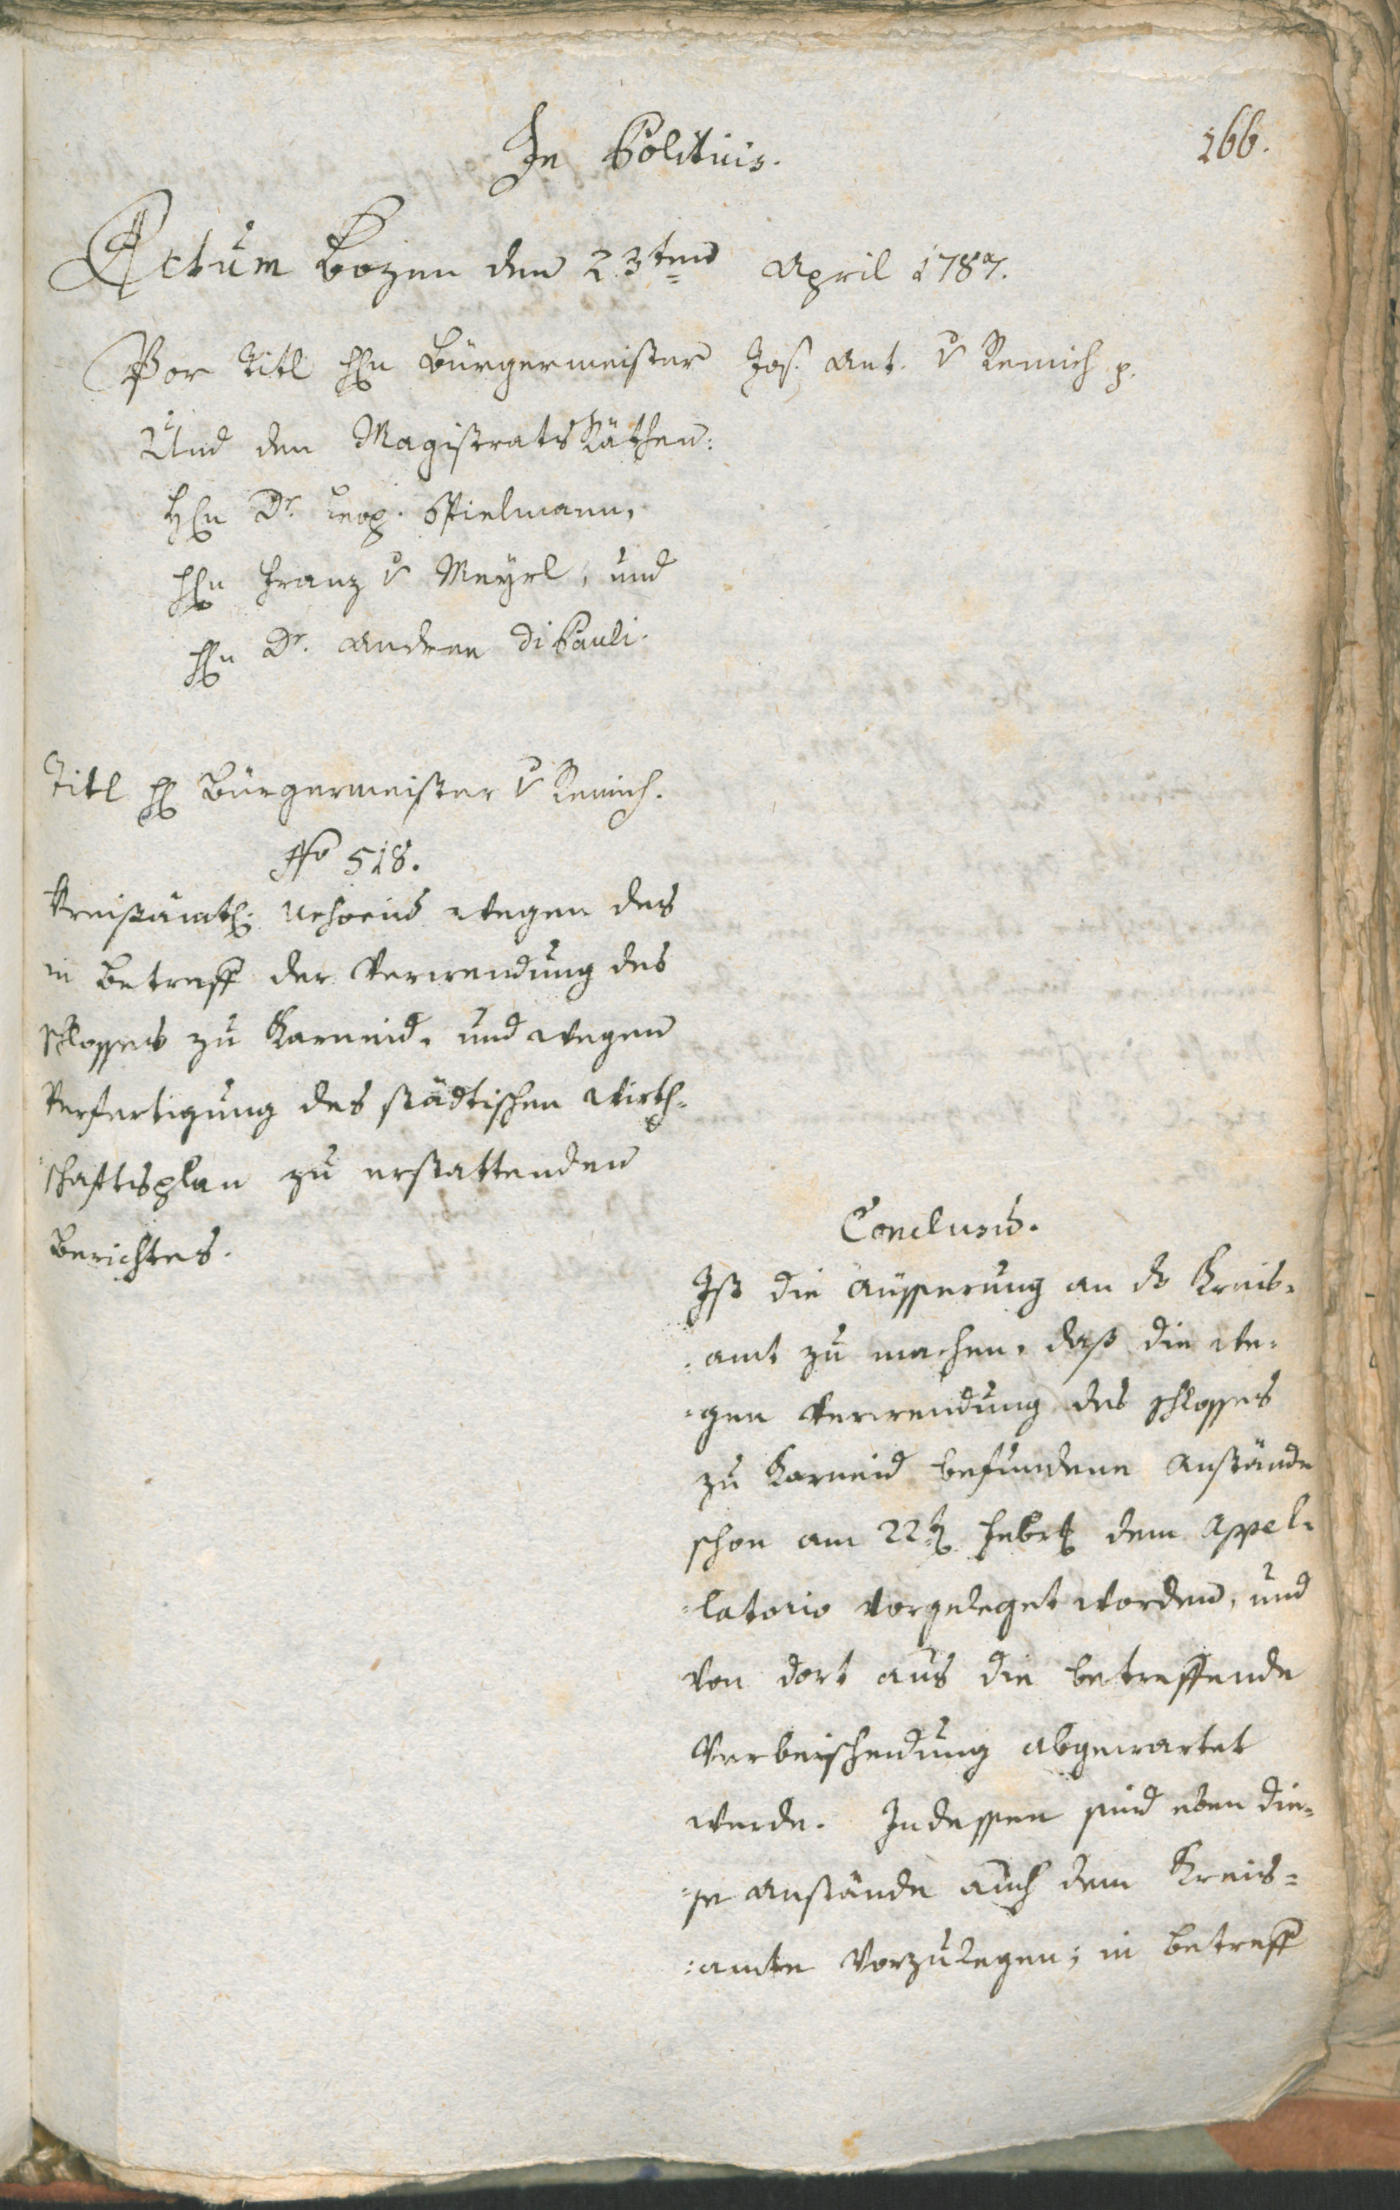 166.
In Politicis.
Actum Bozen den 23ten April 1787.
Vor Titl Hn Bürgermeister Jos. Ant. v Remich p.
Und den Magistrats Räthen:
Hn Dr. Leop. Spielmann,
Hn Franz v Meyrl, und
Hn Dr. Andree di Pauli.
Titl H Bürgermeister v Remich.
No 518.
Kreisämtl. wegen des
in Betreff der Verwendung des
Schlosses zu Karneid, und wegen
Verfertigung des städtischen Wirth-
schaftsplan zu erstattenden
Berichtes.
Conclusum.
Ist die Äusserung an ds Kreis-
amt zu machen, daß die we-
gen Verwendung des Schlosses
zu Karneid befundene Anstände
schon am 22t Febr. dem Appel-
latorio vorgeleget worden, und
von dort aus die betreffende
Verbescheidung abgewartet
werde. Indessen sind eben die-
se Anstände auch dem Kreis-
amte vorzulegen; in Betreff